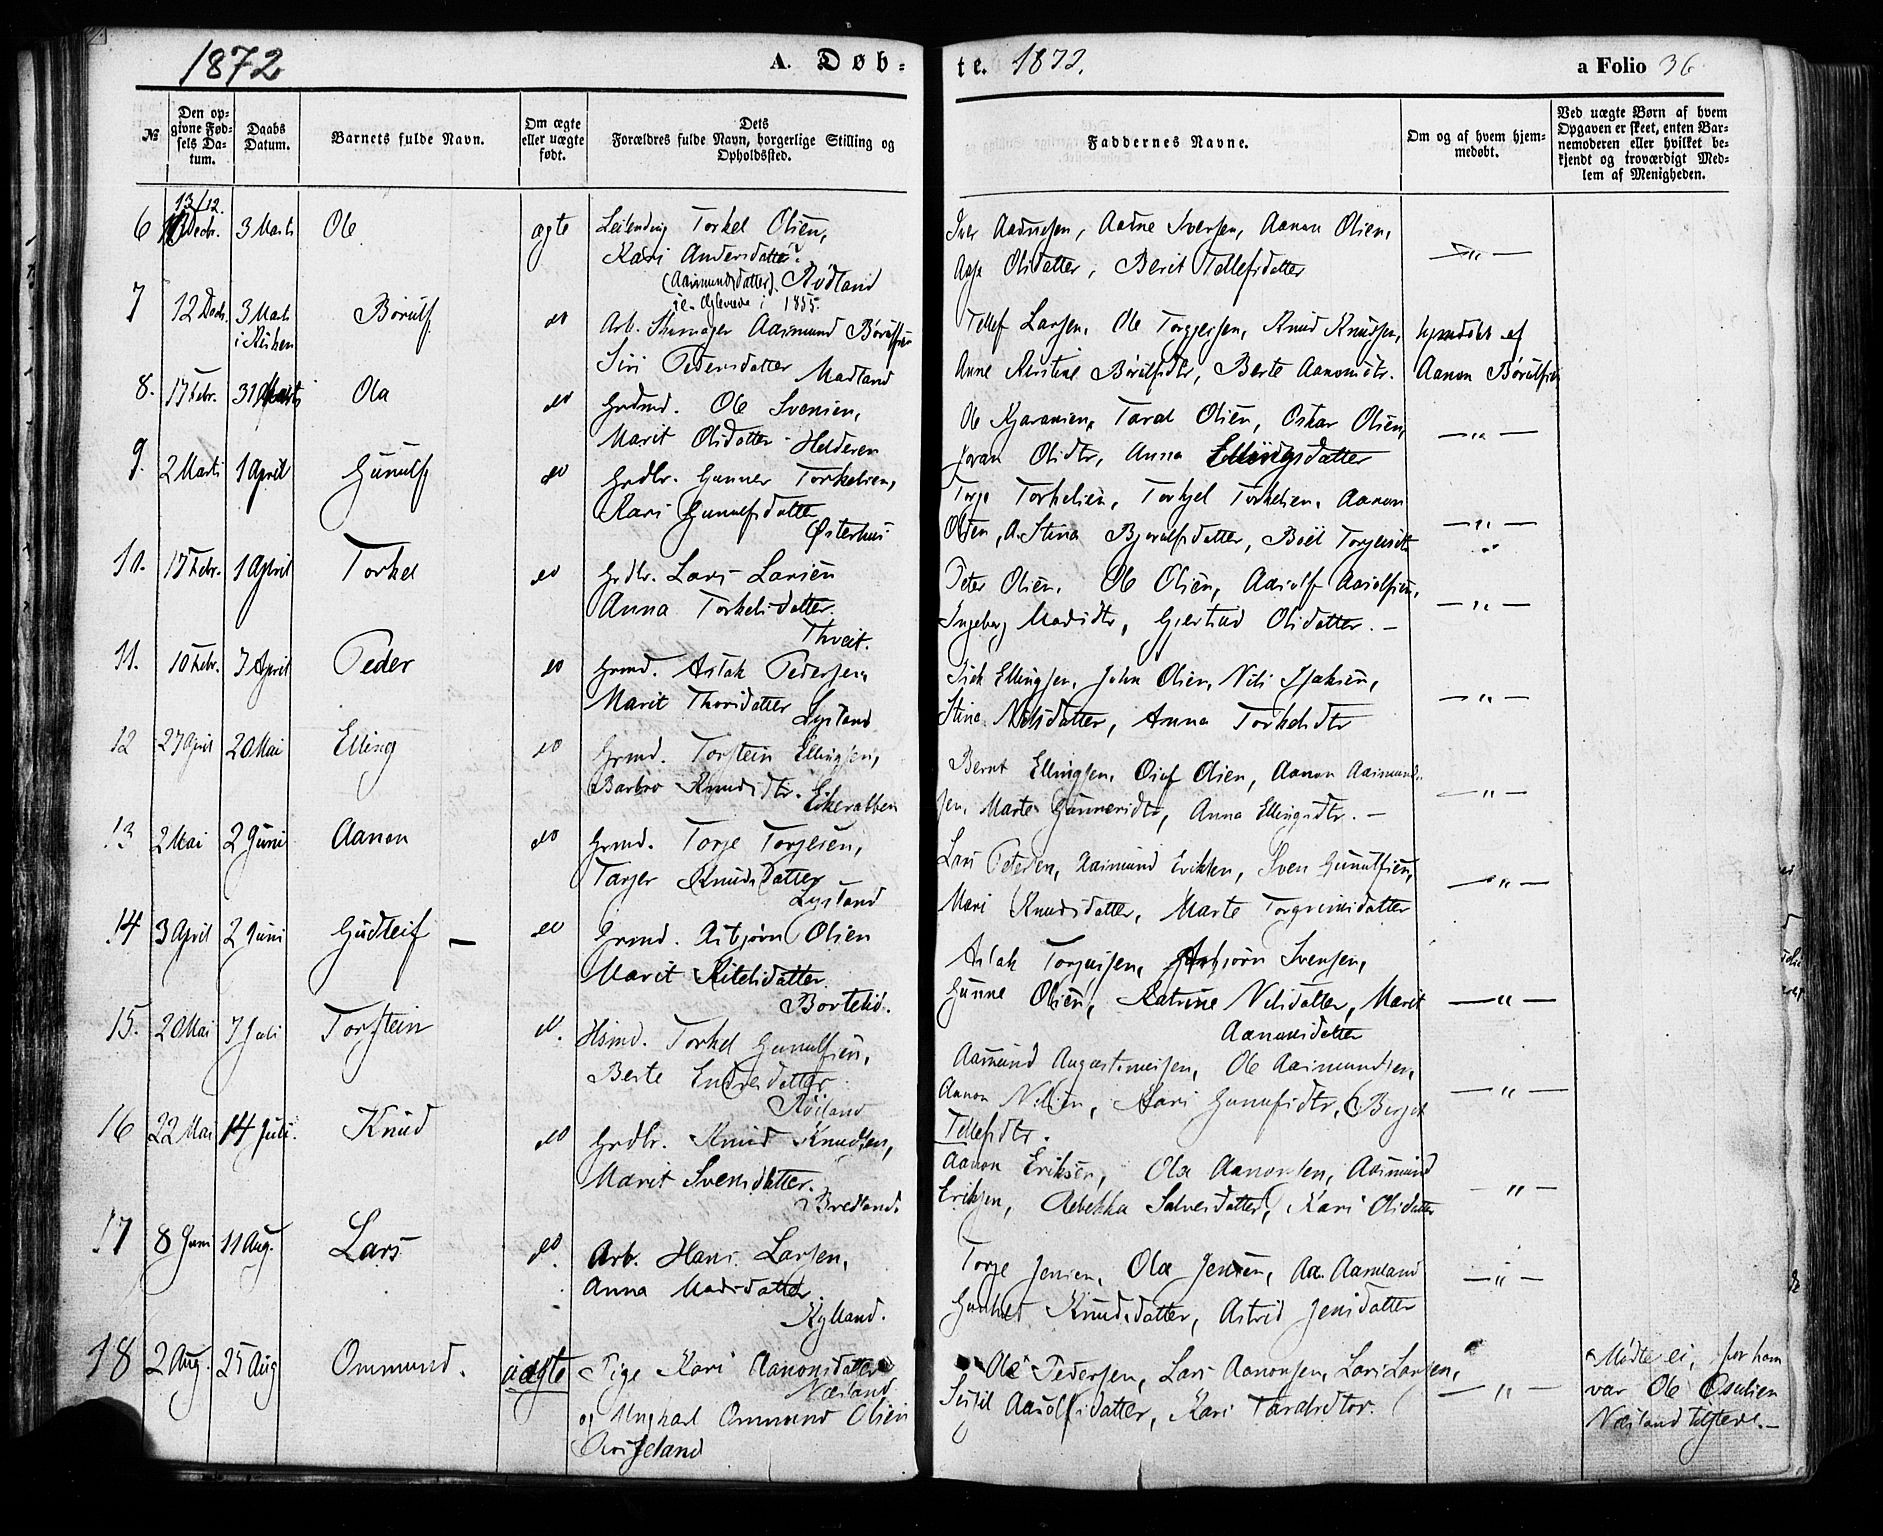 1872 A. Døb- te. 1872. a Folio 36
№ Den opgivne Fødsels Datum. Daabs Datum. Barnets fulde Navn. Om ægte eller uægte født. Dets Forældres fulde Navn, borgerlige Stilling og Opholdssted. Faddernes Navne. Om og af hvem hjemmedøbt. Ved uægte Børn af hvem Opgaven er skeet, enten Barnemoderen eller hvilket bekjendt og troværdigt Medlem af Menigheden.
13/12.
6 Decb. 3 Marts Ole ægte Torkel Olsen, Iver Aadnesen, Aadne Iversen, Aanon Olsen,
Kari Andersdatter Olsdatter, Berit Tellefsdatter — " —
(Aasmundsdatter). Rødland
i 1855.
7 12 Decb. 3 Marts Børulf do Arb. Aasmund Børulfsen Tellef Larsen, Ole Torgjersen, Knud Knudsen, hjemdøbt af
Siri Pedersdatter Madland Anne Kirstine Børulfsdtr, Berte Aanonsdtr. Aanon Børulfsen
8. 17 Febr. 31 Marts Ola do Grdmd. Ole Svensen, Ole Olsen, Oskar Olsen,
Marit Olsdatter Helderen Joran Olsdtr, Anna Ellingsdatter — " —
9. 2 Marts 1 April Gunulf do Grdbr. Gunner Torkelsen, Torje Torkelsen, Torkjel Torkelsen, Aanon
Kari Gunulfsdatter Østerhus Olsen, A. Stina Bjorulfsdatter, — " —
10. 17 Febr. 1 April Torkel do Grdbr. Lars Larsen Peter Olsen, Ole Olsen, Aasolf Aasolfsen,
Anna Torkelsdatter. Ingeborg Madsdtr, Gjertrud Olsdatter. — — " —
Thveit.
11. 10 Febr. 7 April Peder do Grmd. Aslak Pedersen, Ellingsen, John Olsen, Nils Isaksen,
Marit Thorsdatter Lystand Stine Nilsdatter, Anna Torkelsdtr — " —
12 27 April 20 Mai Elling do Grmd. Torstein Ellingsen, Bernt Ellingsen, Olsen, Aanon Aasmund-
Barbro Knudsdtr. sen, Marte Gunnersdtr, Anna Ellingsdtr. — — " —
13 2 Mai 2 Juni Aanon do Grmd. Torje Torjesen, Lars Petersen, Aasmund Eriksen, Sven Gunulfsen,
Tarjer Knudsdatter Mari Knudsdatter, Marte Torgrimsdatter — " —
Lystand
14 3 April 2 Juni Gudleif — do Grmd. Asbjørn Olsen Aslak Torjussen, Asbjørn Svensen,
Marit Kitelsdatter. Gunne Olsen, Katrine Nilsdatter, Marit — " —
Aanonsdatter
15. 20 Mai 7 Juli Torstein do. Hsmd. Torkel Gunulfsen, Aasmund Augustinussen, Ole Aasmundsen,
Berte Endresdatter. Aanon Nilsen, Kari Gunulfsdtr, — " —
Tellefsdtr.
16 22 Mai 14 Juli. Knud do Grdbr. Knud Knudsen, Aanon Eriksen, Ola Aanonsen, Aasmund
Marit Svensdatter. Eriksen, Rebekka Salvesdatter, Kari Olsdatter — " —
Bredland.
17 8 Juni 11 Aug. Lars do. Arb. Hans Larsen, Torje Jensen, Ola Jensen,
Anna Madsdatter Knudsdatter, Astrid Jensdatter — " —
Kylland.
18 2 Aug. 25 Aug Ommund. uægte Pige Kari Aanonsdatter Ole Pedersen, Lars Aanonsen, Lars Larsen, Mødte ei, for ham
Næsland Aasolfsdatter, Kari Taraldsdtr. — " — var Ole Osulsen
og Ungkarl Ommund Olsen Næsland tilstede. —